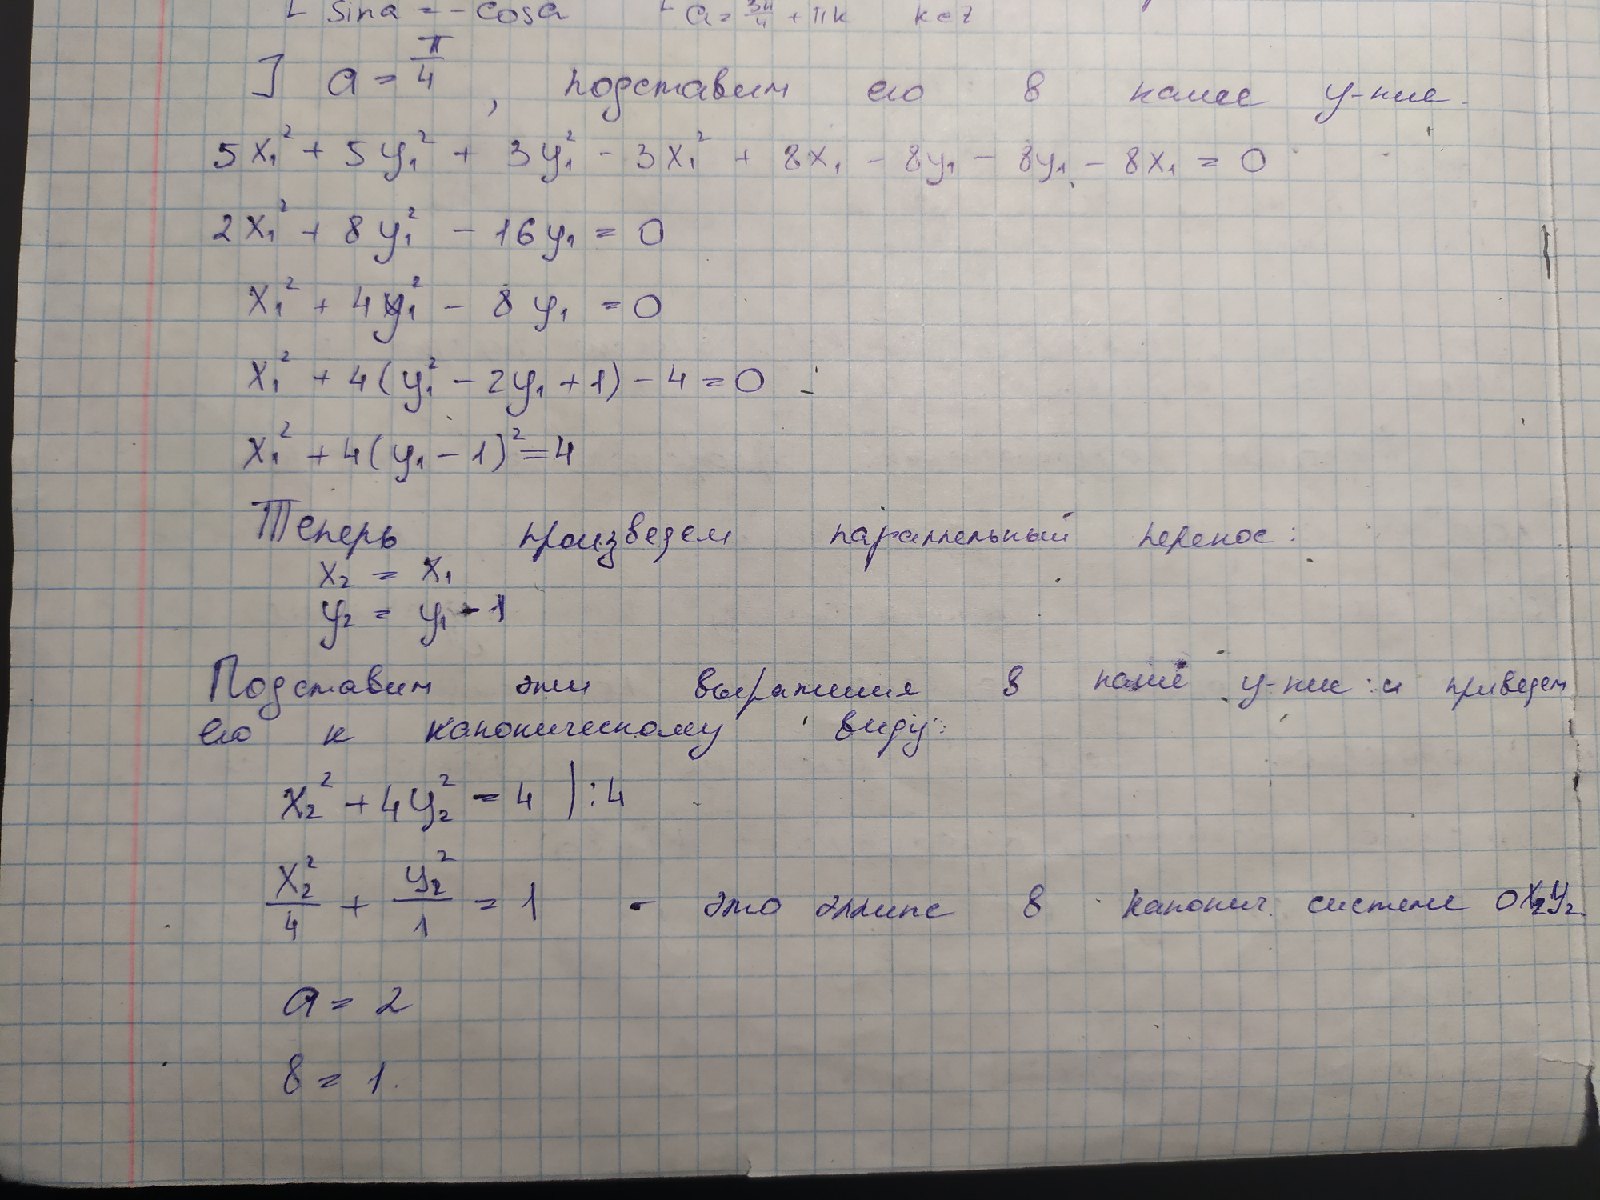 sina = -cosa   a = 3π/4 + πk   k∈Z
] a = π/4, подставим его в наше у-ние.
5x₁² + 5y₁² + 3y₁² - 3x₁² + 8x₁ - 8y₁ - 8y₁ - 8x₁ = 0
2x₁² + 8y₁² - 16y₁ = 0
x₁² + 4y₁² - 8y₁ = 0
x₁² + 4(y₁² - 2y₁ + 1) - 4 = 0
x₁² + 4(y₁ - 1)² = 4
Теперь произведем параллельный перенос:
x₂ = x₁
y₂ = y₁ - 1
Подставим эти выражения в наше у-ние и приведем
его к каноническому виду:
x₂² + 4y₂² = 4 | :4
x₂²/4 + y₂²/1 = 1 - это эллипс в канонич. системе OX₂Y₂.
a = 2
в = 1.